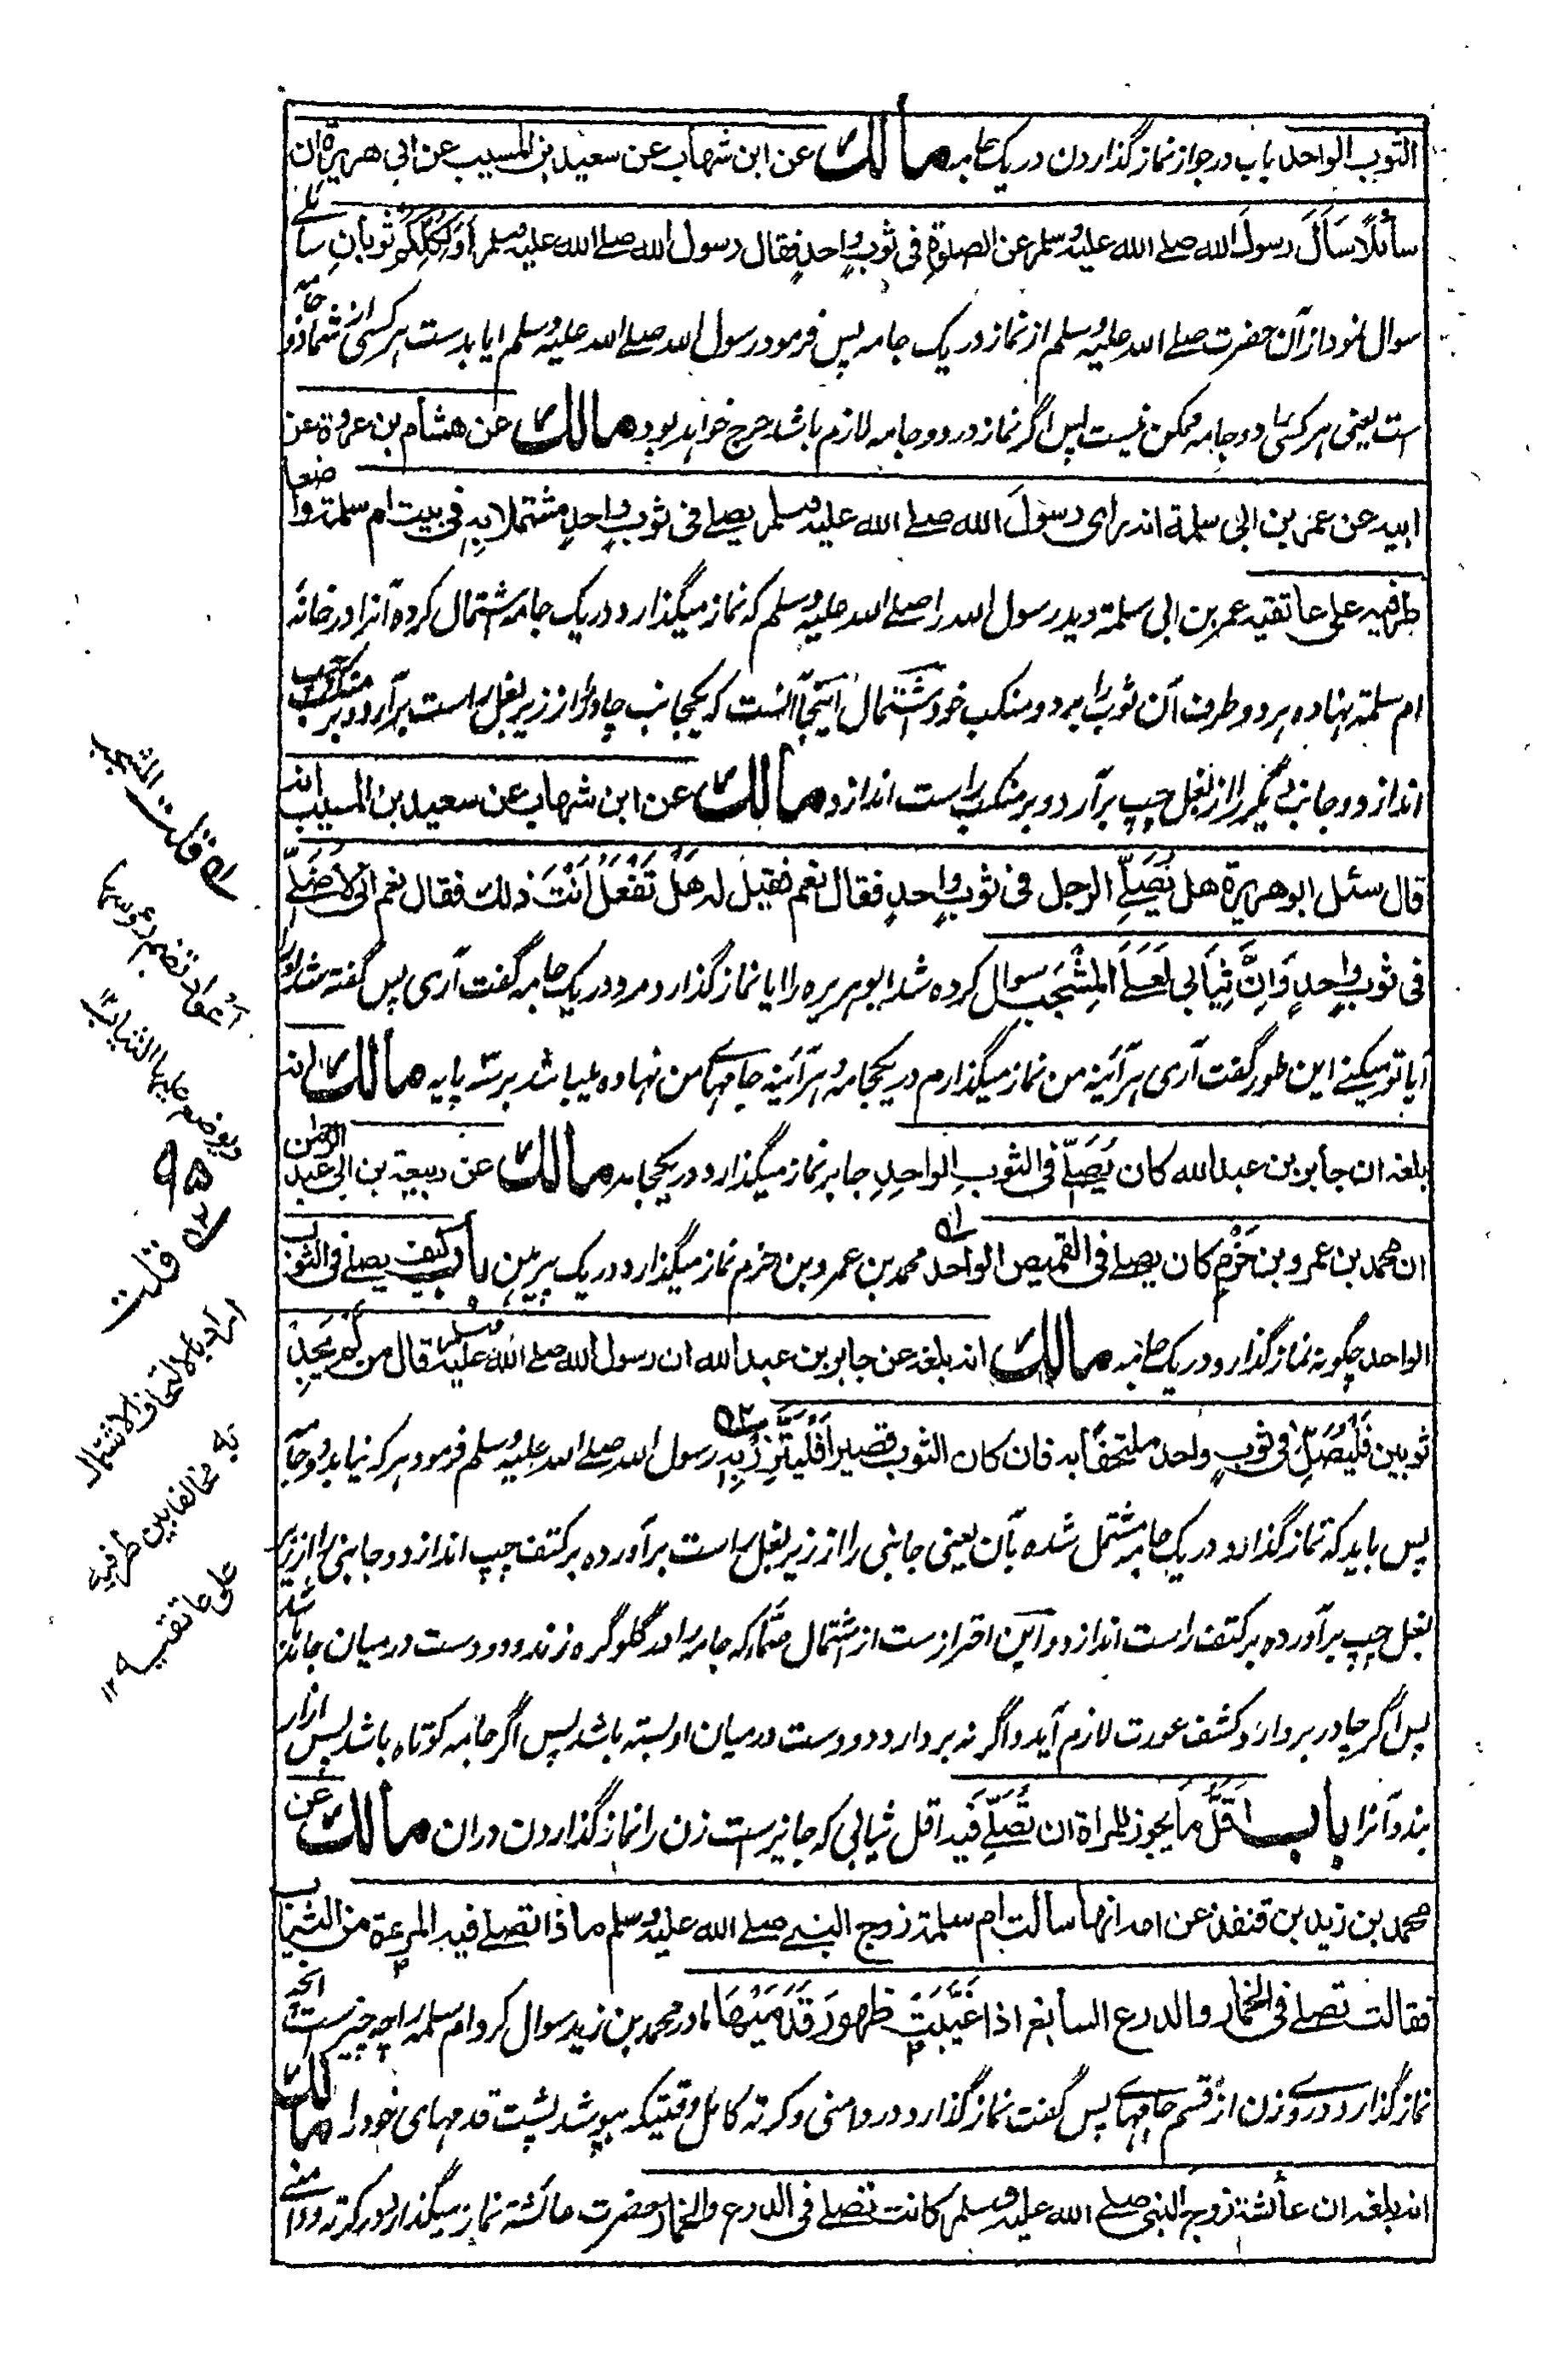 الثوب الواحد باب در جواز نماز گذاردن در یک جامه مالك عن ابن شهاب عن سعيد بن المسيب عن ابي هريرة ان
سائلًا سَأَلَ رسولَ الله صلے الله عليه وسلم عن الصلوةِ فی ثوبٍ واحدٍ فقال رسول الله صلے الله عليه وسلم أَوَلِكُلِّكُمْ ثوبانِ سائلے
سوال نمود از آن حضرت صلے الله علیه وسلم از نماز در یک جامه پس فرمود رسول الله صلے الله علیه وسلم ایا بدست هر کسی از شما دو جامه
است یعنی هر کسی را دو جامه ممکن نیست پس اگر نماز در دو جامه لازم باشد حرج خواهد بود مالك عن هشام بن عروة عن
ابيه عن عمر بن ابي سلمة انه رای رسولَ الله صلے الله عليه وسلم يصلے فی ثوبٍ واحدٍ مشتملا بهِ فی بيت ام سلمة واضعا
طرفيه علی عاتقيه عمر بن ابی سلمة دید رسول الله را صلے الله علیه وسلم که نماز میگذارد در یک جامه اشتمال کرده آنرا در خانهٔ
ام سلمة نهاده هر دو طرف آن ثوب را بر دو منکب خود اشتمال اینجا آنست که یکجانب چادر را از زیر بغل راست برآرد و بر منکب چپ
اندازد و جانب دیگر را از بغل چپ برآرد و بر منکب راست اندازد مالك عن ابن شهاب عن سعيد بن المسيب انه
قال سئل ابو هريرة هل يُصَلِّے الرجل فی ثوبٍ واحدٍ فقال نعم فقيل له هَلْ تَفْعَلُ اَنْتَ ذلك فقال نعم انی لَاُصَلِّے
فی ثوبٍ واحدٍ وَاِنَّ ثِيَابی لَعَلَے المِشْجَبِ سوال کرده شد ابو هریره را ایا نماز گذارد مرد در یک جامه گفت آری پس گفته شد اورا
آیا تو میکنے این طور گفت آری هر آئینه من نماز میگذارم در یکجامه و هر آئینه جامهاے من نهاده میباشد بر سه پایه مالك انه
بلغه ان جابر بن عبد الله كان يُصَلِّے فی الثوبِ الواحدِ جابر نماز میگذارد در یکجامه مالك عن ربيعة بن ابی عبد الرحمن
ان محمد بن عمرو بن حَزْمٍ كان يصلے فی القميص الواحد محمد بن عمرو بن حزم نماز میگذارد در یک پیرهن باب كيف يصلے فی الثوب
الواحد چگونه نماز گذارد در یک جامه مالك انه بلغه عن جابر بن عبد الله ان رسول الله صلے الله عليه وسلم قال من لَمْ يَجِدْ
ثوبين فَلْيُصَلِّ فی ثوبٍ واحد ملتحفًا به فان كان الثوب قصيراً فَلْيَتَّزِرْ بِهِ رسول الله صلے الله علیه وسلم فرمود هر که نیابد دو جامه
پس باید که نماز گذارد در یک جامه مشتمل شده بآن یعنی جانبی را از زیر بغل راست برآورده بر کتف چپ اندازد و جانبی را از زیر
بغل چپ برآورده بر کتف راست اندازد و این احترازست از اشتمال صما که جامه را در گلو گره زند و دو دست درمیان جامه باشد
پس اگر چادر بردارد کشف عورت لازم آید و اگر نه بردارد دو دست درمیان او بسته باشد پس اگر جامه کوتاه باشد پس ازار
بندد آنرا باب اَقَلُّ ما يجوز للمراة ان تُصَلِّے فيه اقل ثیابی که جائزست زن را نماز گذاردن دران مالك عن
محمد بن زيد بن قنفذ عن امه انها سالت ام سلمة زوج النبے صلے الله عليه وسلم ماذا تصلے فيه المرءة من الثياب
فقالت تصلے فی الخمار والدرع السابغ اذا غَيَّبَتْ ظهورَ قَدَمَيْهَا مادر محمد بن زید سوال کرد ام سلمه را چه چیزست آنچه
نماز گذارد در وے زن از قسم جامهاے پس گفت نماز گذارد در دامنی و کرته کامل وقتیکه بپوشد پشت قدمهای خود را مالك
انه بلغه ان عائشة زوج النبی صلے الله عليه وسلم كانت تصلے فی الدرع والخمار حضرت عائشه نماز میگذارد در کرته و دامنے
۵۱ قلت المشجب
اعواد تضم رءوسها
ويوضع عليها الثياب
۹۵
۵۲ قلت
اراد بالالتحاف الاشتمال
به مخالفا بين طرفيه
علی عاتقيه ۱۲